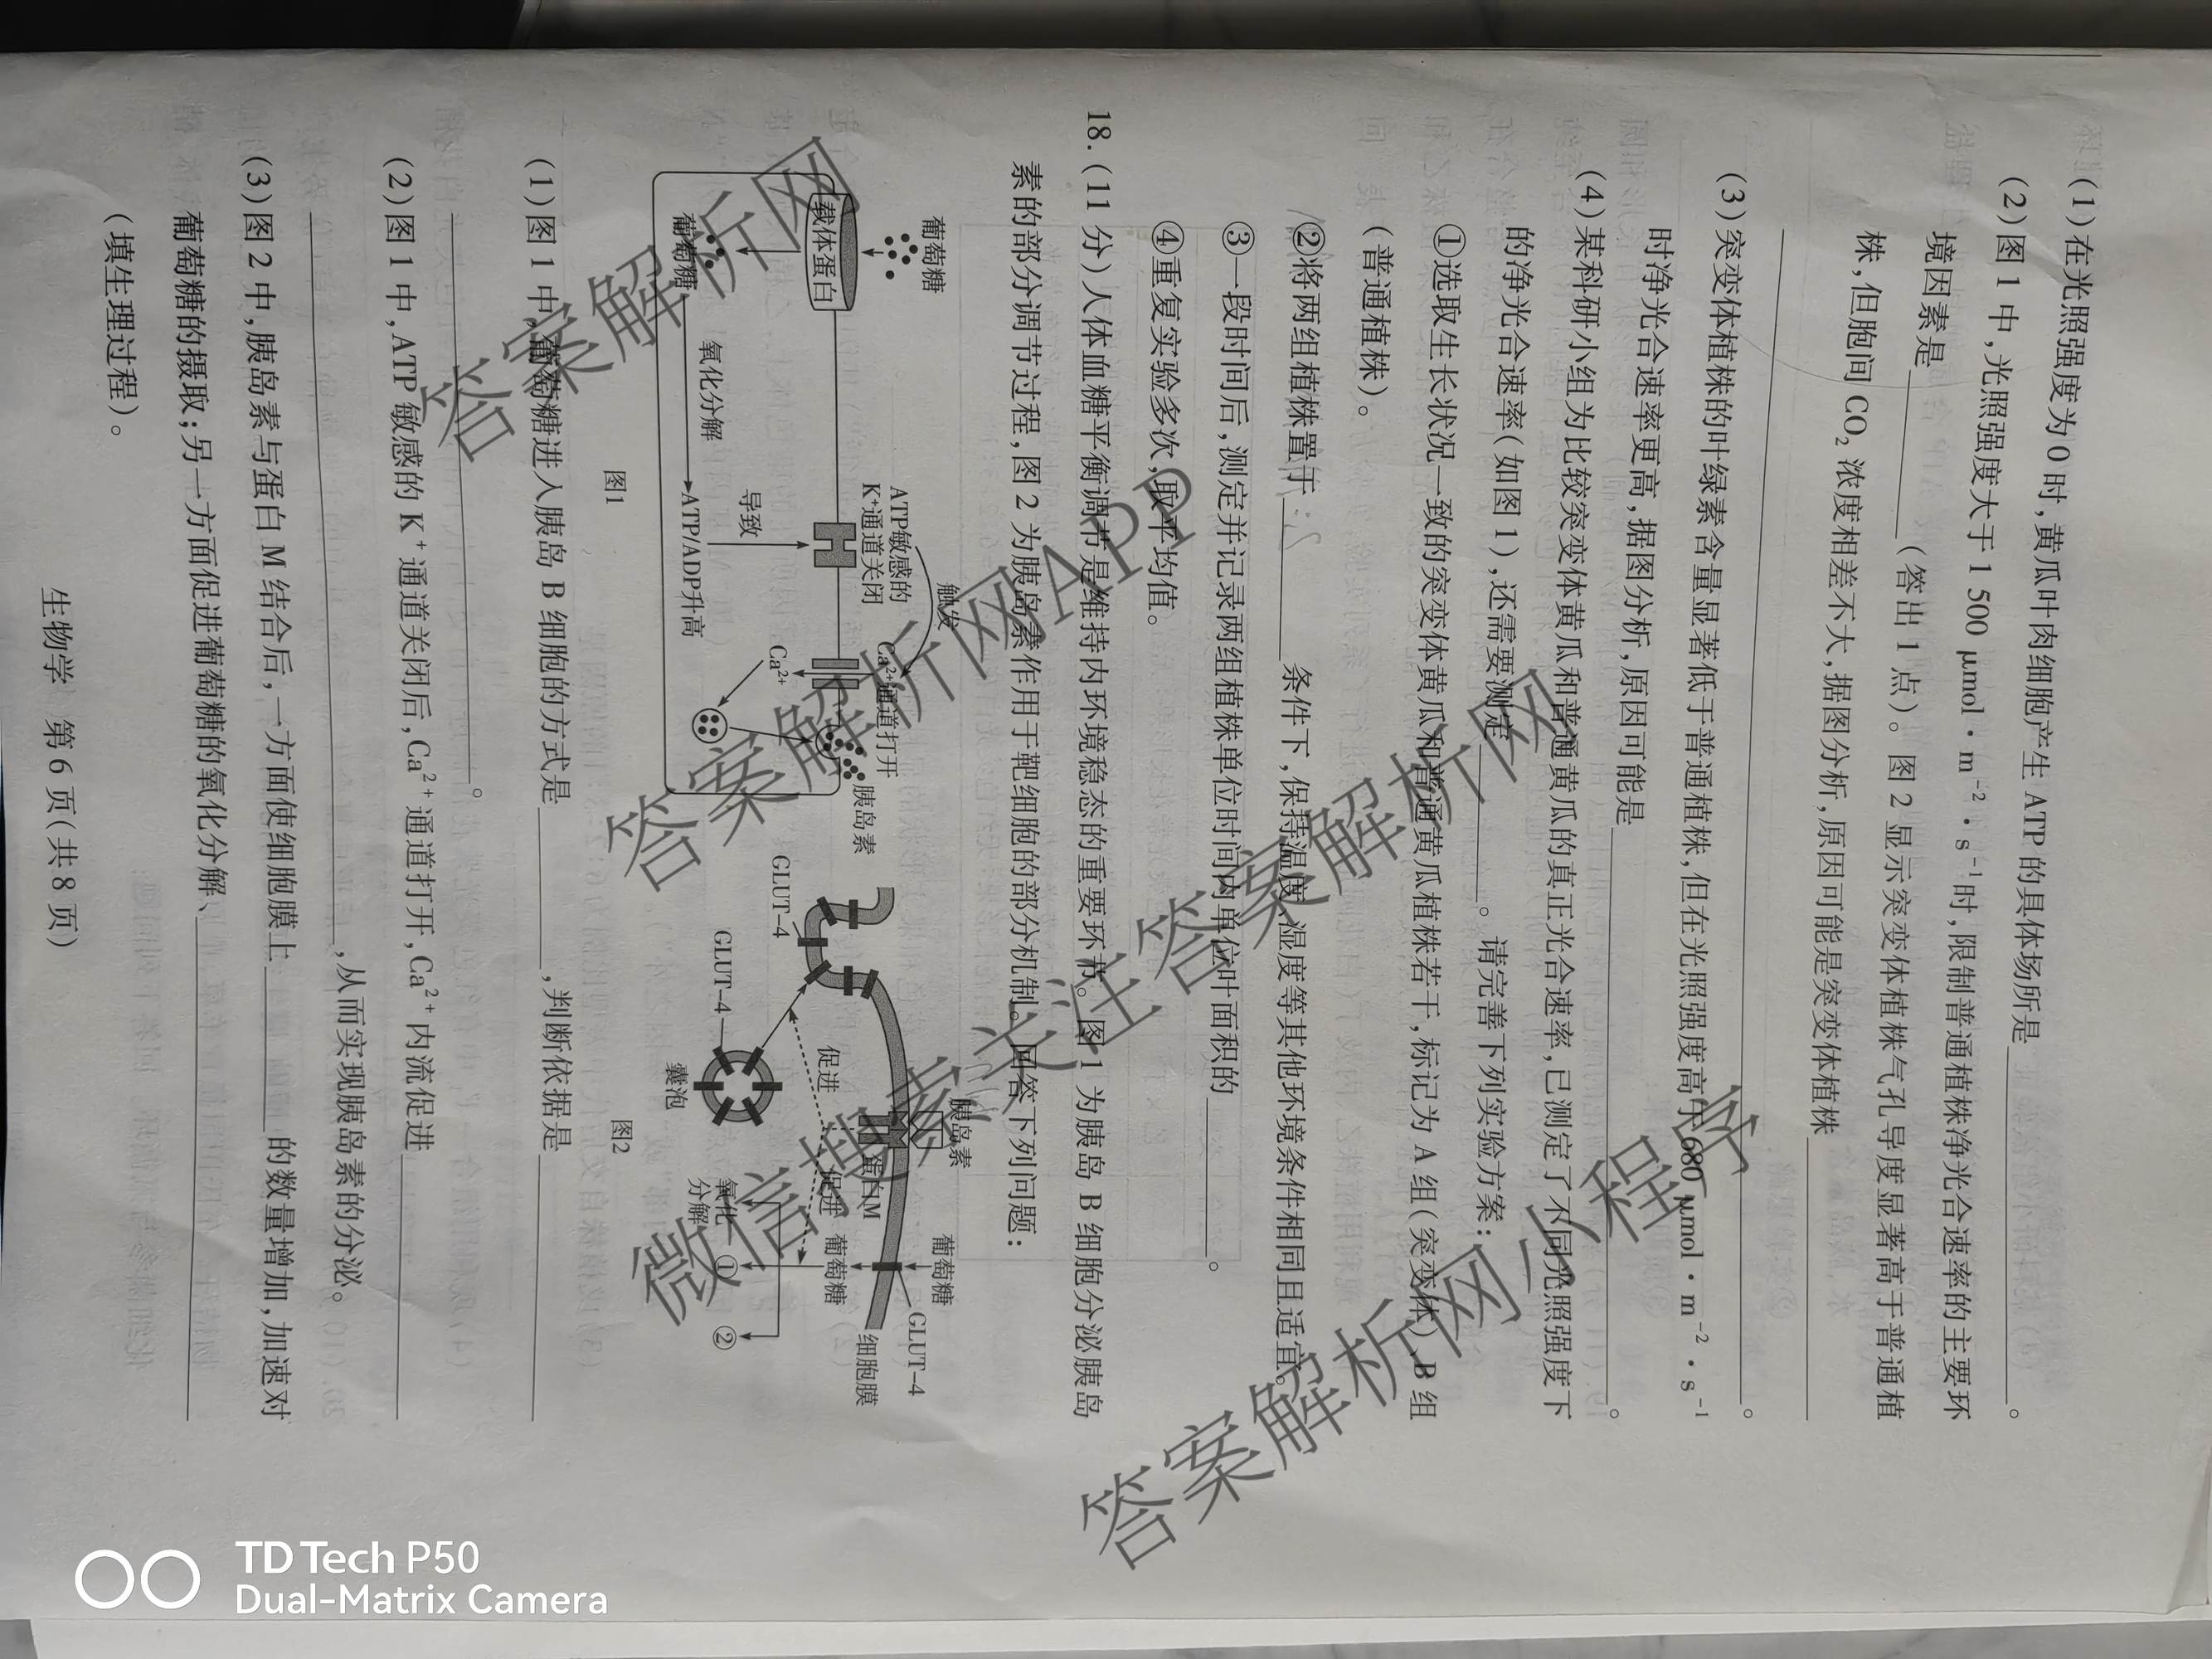 (1)在光照强度为0时,黄瓜叶肉细胞产生ATP的具体场所是
(2)图1中,光照强度大于1 500 μmol·m⁻²·s⁻¹时,限制普通植株净光合速率的主要环
境因素是 (答出1点)。图2显示突变体植株气孔导度显著高于普通植
株,但胞间CO₂浓度相差不大,据图分析,原因可能是突变体植株
。
(3)突变体植株的叶绿素含量显著低于普通植株,但在光照强度高于680 μmol·m⁻²·s⁻¹
时净光合速率更高,据图分析,原因可能是 。
(4)某科研小组为比较突变体黄瓜和普通黄瓜的真正光合速率,已测定了不同光照强度下
的净光合速率(如图1),还需要测定 。请完善下列实验方案:
①选取生长状况一致的突变体黄瓜和普通黄瓜植株若干,标记为A组(突变体)、B组
(普通植株)。
②将两组植株置于 条件下,保持温度、湿度等其他环境条件相同且适宜。
③一段时间后,测定并记录两组植株单位时间内单位叶面积的 。
④重复实验多次,取平均值。
18.(11分)人体血糖平衡调节是维持内环境稳态的重要环节。图1为胰岛B细胞分泌胰岛
素的部分调节过程,图2为胰岛素作用于靶细胞的部分机制。回答下列问题:
葡萄糖
载体蛋白
葡萄糖
氧化分解
ATP/ADP升高
导致
ATP敏感的
K⁺通道关闭
触发
Ca²⁺通道打开
Ca²⁺
胰岛素
图1
GLUT-4
GLUT-4
囊泡
促进
胰岛素
蛋白M
促进
葡萄糖
葡萄糖
GLUT-4
细胞膜
氧化
分解
①
②
图2
(1)图1中,葡萄糖进入胰岛B细胞的方式是 ,判断依据是
。
(2)图1中,ATP敏感的K⁺通道关闭后,Ca²⁺通道打开,Ca²⁺内流促进
,从而实现胰岛素的分泌。
(3)图2中,胰岛素与蛋白M结合后,一方面使细胞膜上 的数量增加,加速对
葡萄糖的摄取;另一方面促进葡萄糖的氧化分解、
(填生理过程)。
生物学 第6页(共8页)
答案解析网
答案解析网APP
微信搜索关注答案解析网
答案解析网小程序
TD Tech P50
Dual-Matrix Camera